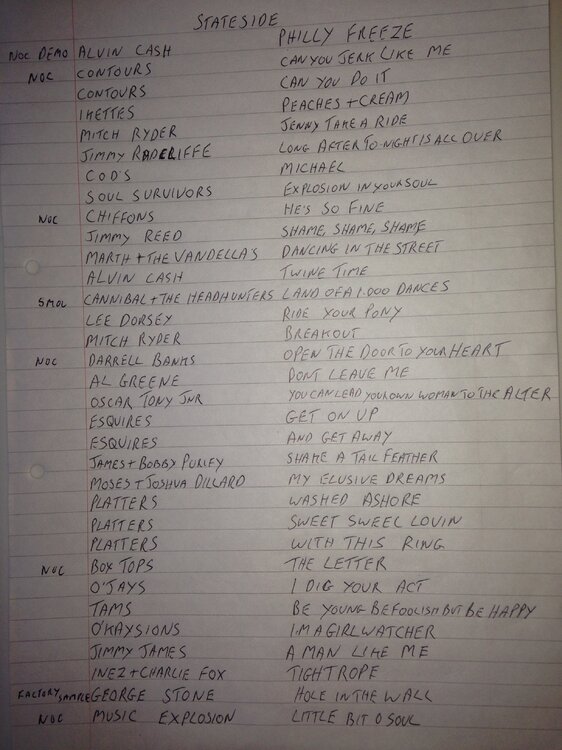 STATESIDE
NOC DEMO ALVIN CASH PHILLY FREEZE
NOC CONTOURS CAN YOU JERK LIKE ME
CONTOURS CAN YOU DO IT
IKETTES PEACHES + CREAM
MITCH RYDER JENNY TAKE A RIDE
JIMMY RADCLIFFE LONG AFTER TO-NIGHT IS ALL OVER
C.O.D'S MICHAEL
SOUL SURVIVORS EXPLOSION IN YOUR SOUL
NOC CHIFFONS HE'S SO FINE
JIMMY REED SHAME, SHAME, SHAME
MARTH + THE VANDELLA'S DANCING IN THE STREET
ALVIN CASH TWINE TIME
SMOL CANNIBAL + THE HEADHUNTERS LAND OF A 1.000 DANCES
LEE DORSEY RIDE YOUR PONY
MITCH RYDER BREAKOUT
NOC DARRELL BANKS OPEN THE DOOR TO YOUR HEART
AL GREENE DONT LEAVE ME
OSCAR TONY JNR YOU CAN LEAD YOUR OWN WOMAN TO THE ALTER
ESQUIRES GET ON UP
ESQUIRES AND GET AWAY
JAMES + BOBBY PURLEY SHAKE A TAIL FEATHER
MOSES + JOSHUA DILLARD MY ELUSIVE DREAMS
PLATTERS WASHED ASHORE
PLATTERS SWEET SWEEL LOVIN
PLATTERS WITH THIS RING
NOC BOX TOPS THE LETTER
O'JAYS I DIG YOUR ACT
TAMS BE YOUNG BE FOOLISH BUT BE HAPPY
O'KAYSIONS I.M A GIRL WATCHER
JIMMY JAMES A MAN LIKE ME
INEZ + CHARLIE FOX TIGHTROPE
FACTORY SAMPLE GEORGE STONE HOLE IN THE WALL
NOC MUSIC EXPLOSION LITTLE BIT O SOUL